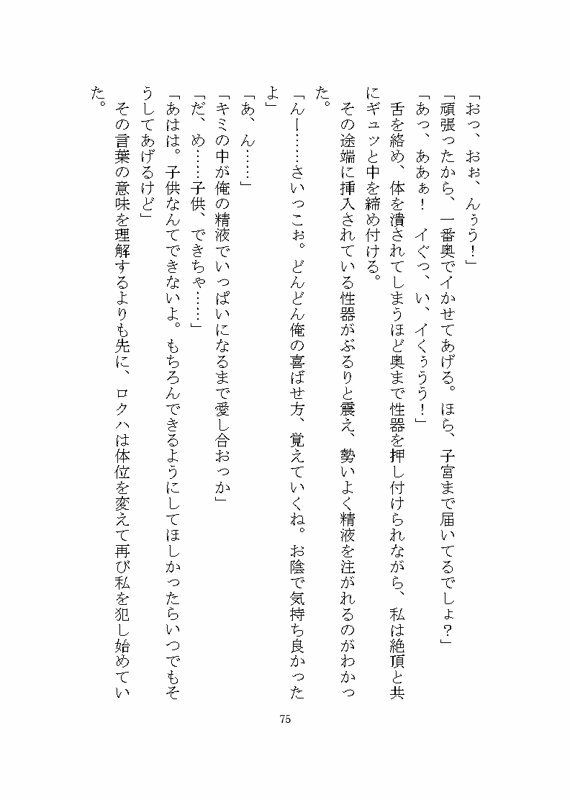 「おっ、おぉ、んぅう！」
「頑張ったから、一番奥でイかせてあげる。ほら、子宮まで届いてるでしょ？」
「あっ、ああぁ！　イぐっ、い、イくぅうう！」
　舌を絡め、体を潰されてしまうほど奥まで性器を押し付けられながら、私は絶頂と共
にギュッと中を締め付ける。
　その途端に挿入されている性器がぶるりと震え、勢いよく精液を注がれるのがわかっ
た。
「んー……さいっこぉ。どんどん俺の喜ばせ方、覚えていくね。お陰で気持ち良かった
よ」
「あ、ん……」
「キミの中が俺の精液でいっぱいになるまで愛し合おっか」
「だ、め……子供、できちゃ……」
「あはは。子供なんてできないよ。もちろんできるようにしてほしかったらいつでもそ
うしてあげるけど」
　その言葉の意味を理解するよりも先に、ロクハは体位を変えて再び私を犯し始めてい
た。
75